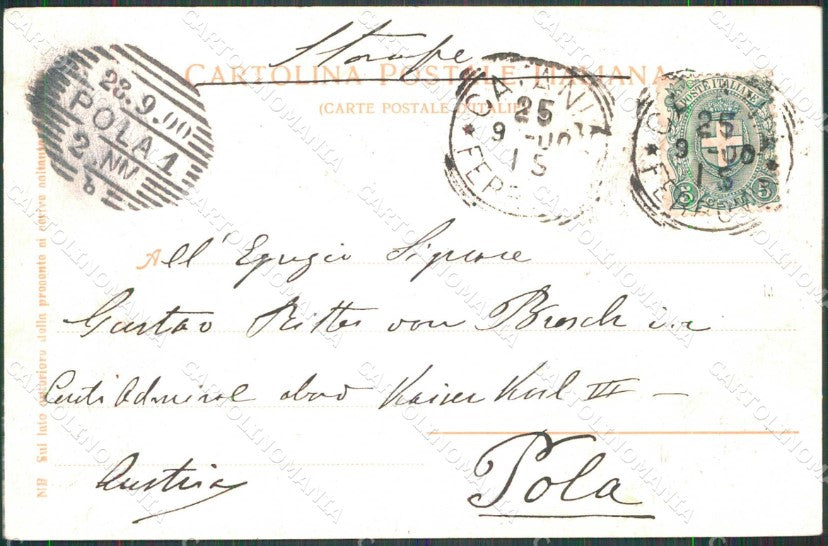 Stampe
CARTOLINA POSTALE ITALIANA
(CARTE POSTALE D'ITALIE)
28.9.00
POLA 1
2. NV
b
CATANIA
25
9 - 00
1 S
FERR
POSTE ITALIANE
25
9 - 00
1 S
FERROV
5 5
CENT
All' Egregio Signore
Gustav Ritter von Brosch
Contíadmiral
Kaiser Karl III
Pola
Austria
NB Sul lato anteriore della presente si scrive soltanto
CARTOLINOMANIA